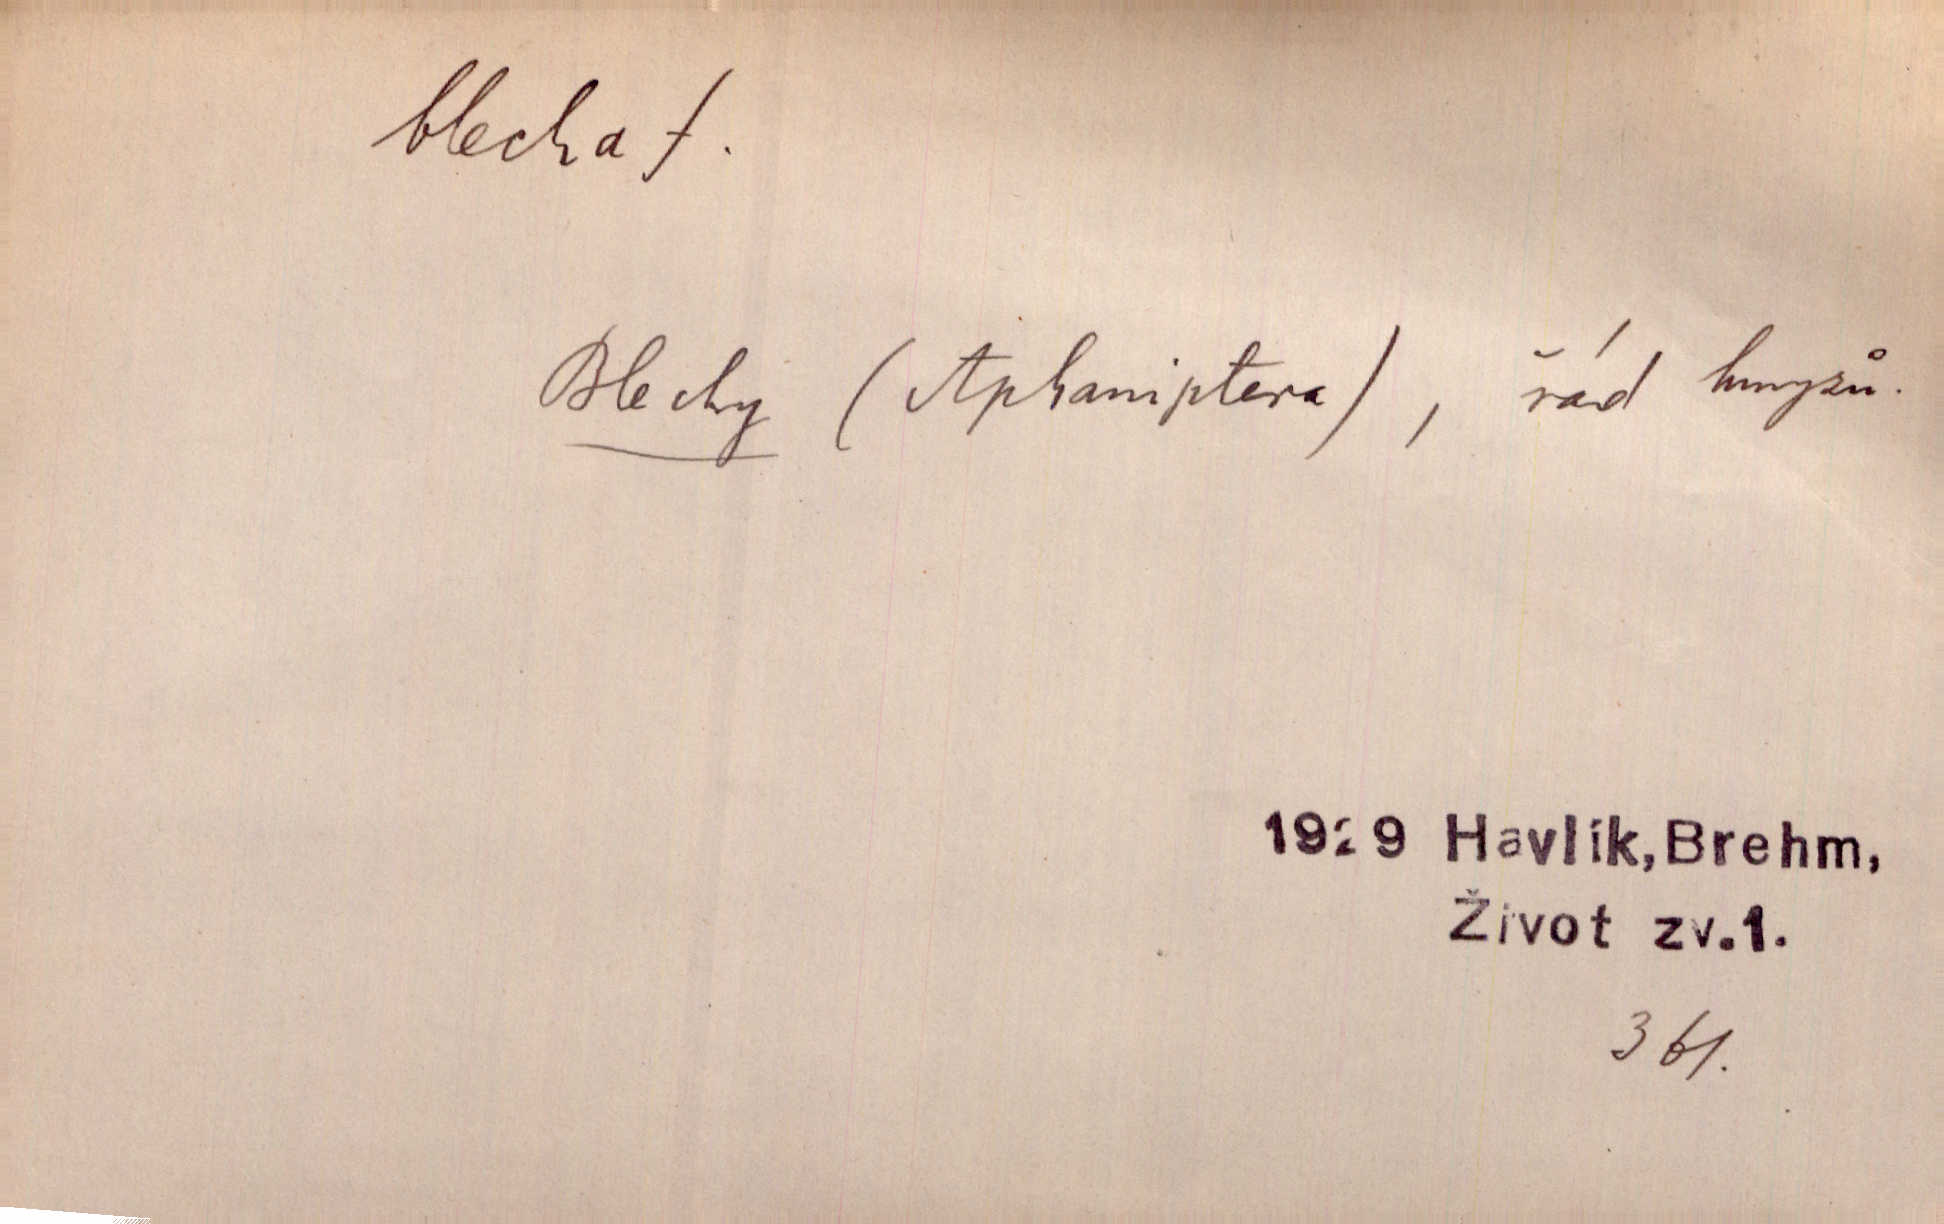 blecha f.
Blechy (Aphaniptera), řád hmyzů.
1929 Havlík, Brehm,
Život zv.1.
361.